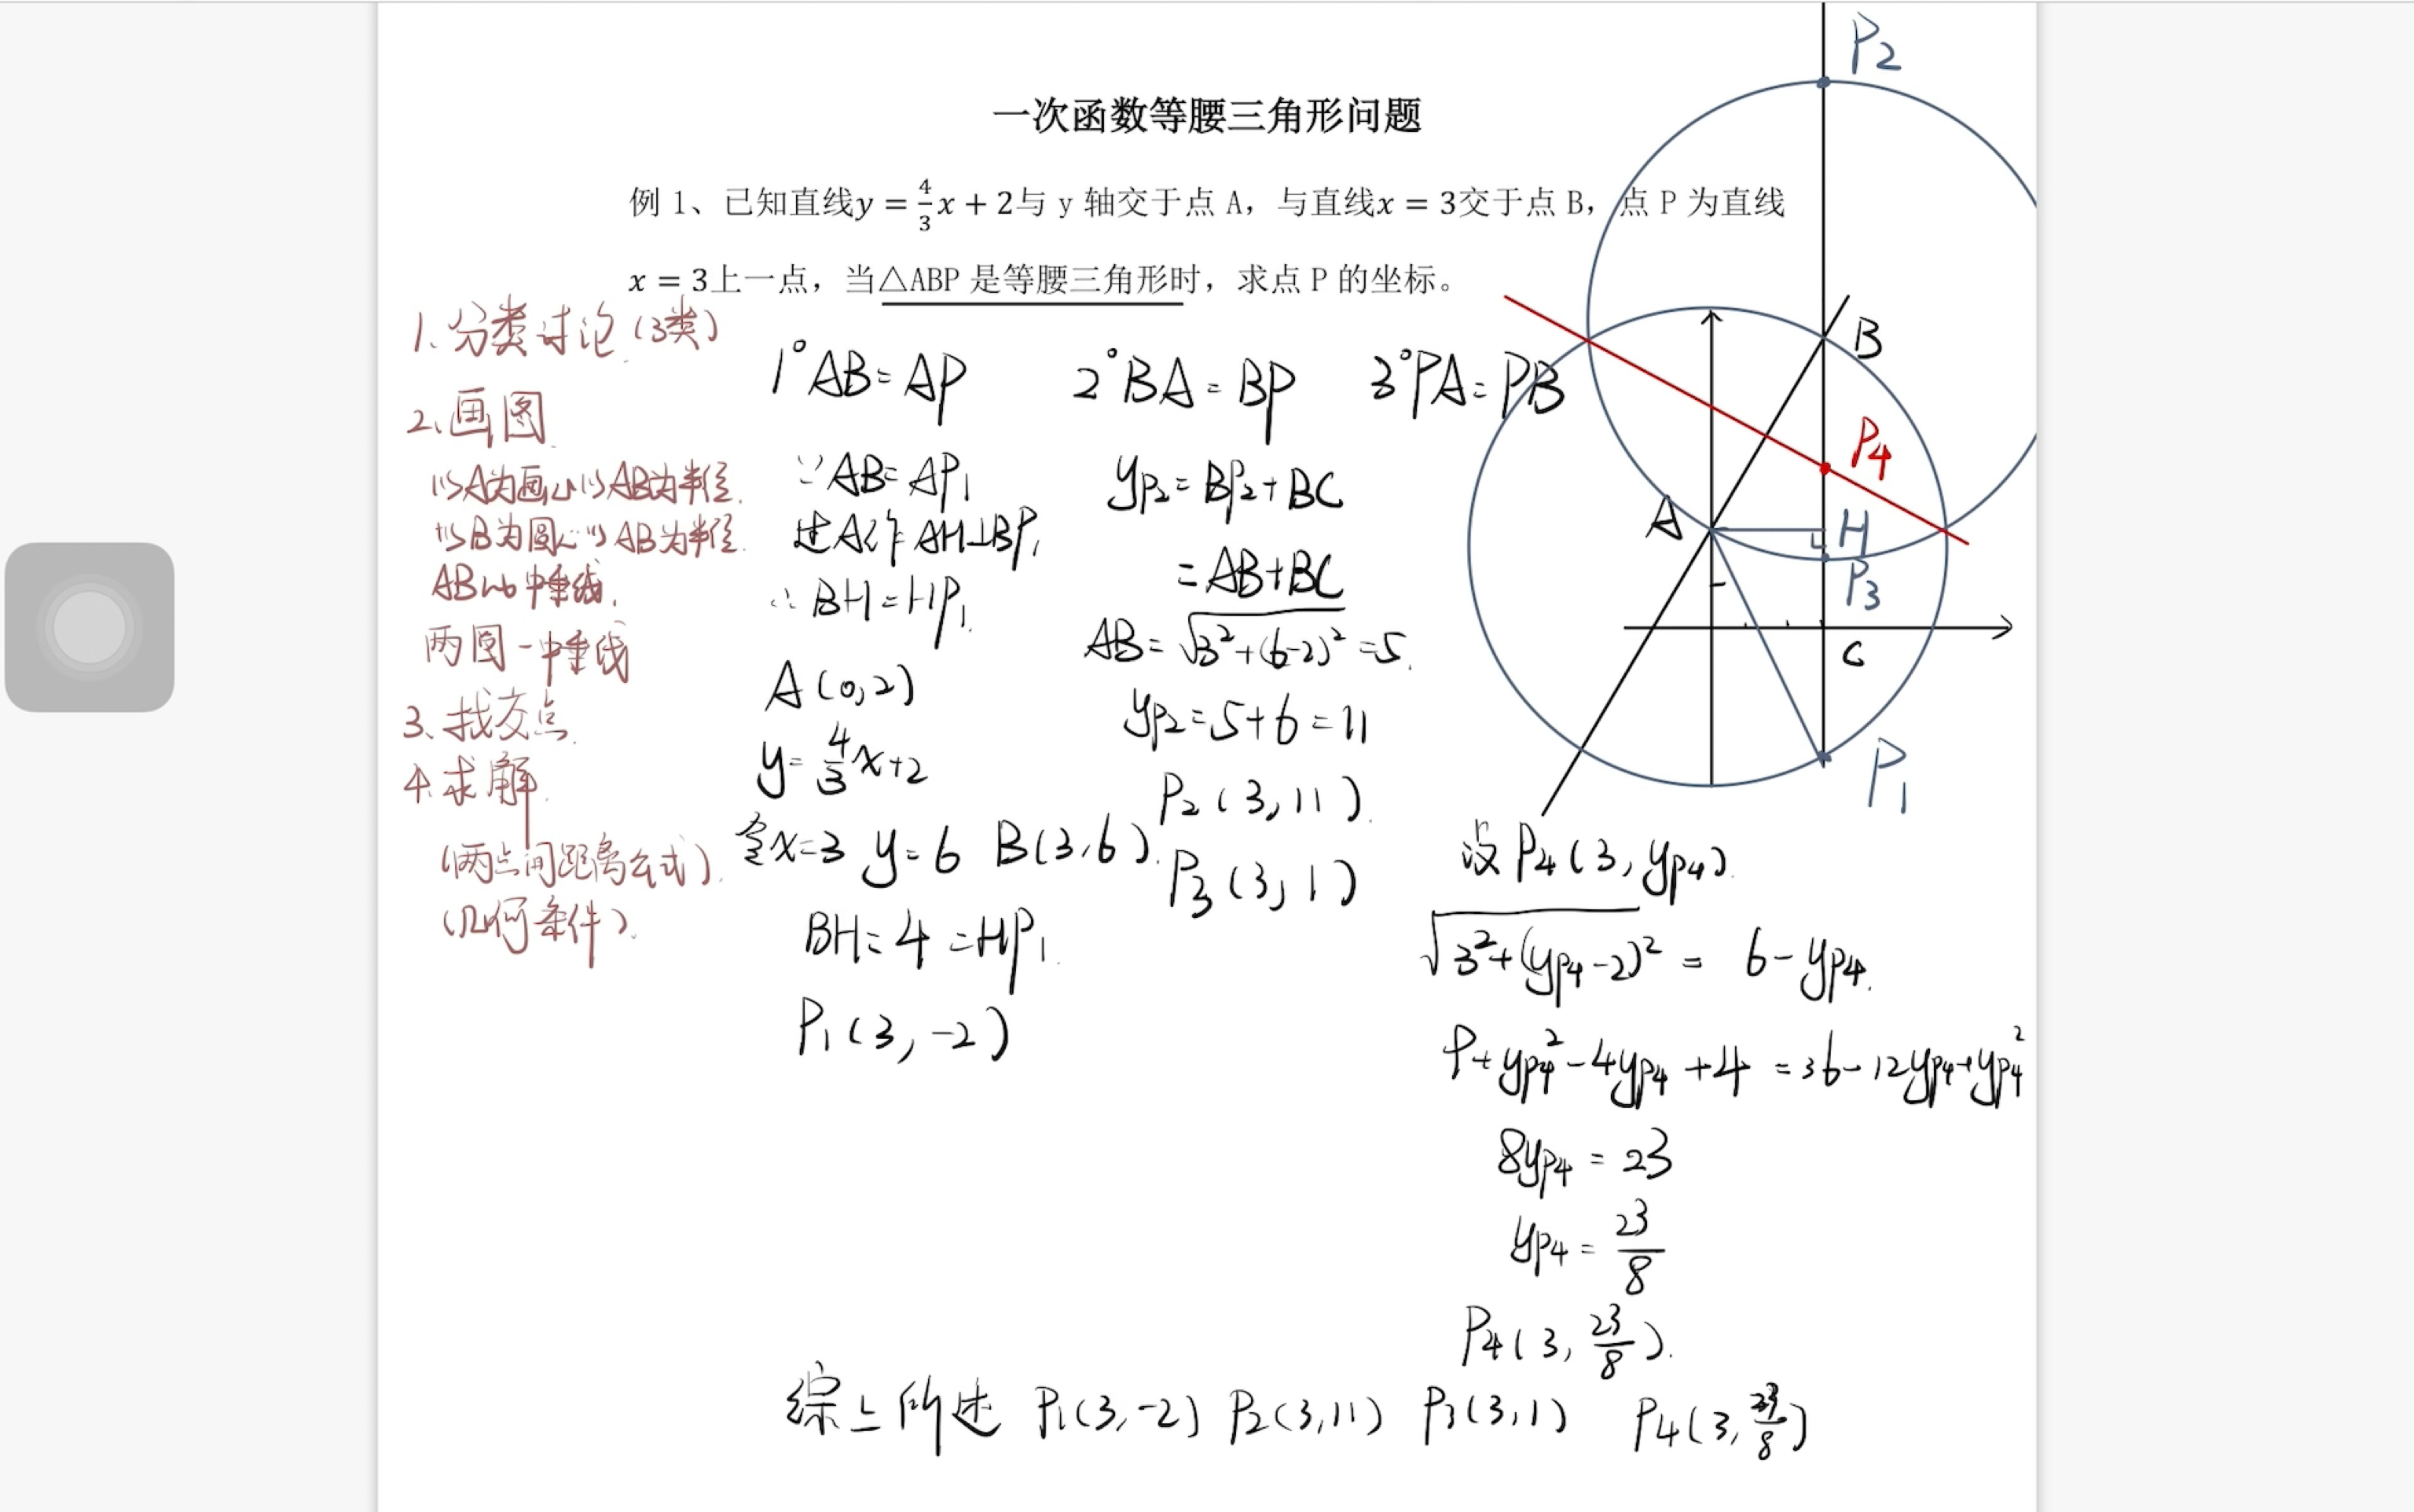 一次函数等腰三角形问题
例 1、已知直线y = 4/3 x + 2与 y 轴交于点 A，与直线x = 3交于点 B，点 P 为直线
x = 3上一点，当△ABP 是等腰三角形时，求点 P 的坐标。
1、分类讨论（3类）
2、画图
以A为圆心以AB为半径.
以B为圆心以AB为半径.
AB的中垂线.
两圆一中垂线
3、找交点.
4.求解.
（两点间距离公式）.
（几何条件）.
1°AB=AP
∵AB=AP1
过A作AH⊥BP1
∴BH=HP1.
A(0,2)
y=4/3x+2
令x=3 y=6 B(3,6).
BH=4=HP1.
P1(3,-2)
2°BA=BP
yP2=BP2+BC
=AB+BC
AB=√3²+(6-2)²=5.
yP2=5+6=11
P2(3,11).
P3(3,1)
3°PA=PB
设P4(3,yP4).
√3²+(yP4-2)² = 6-yP4.
9+yP4²-4yP4+4=36-12yP4+yP4²
8yP4=23
yP4=23/8
P4(3,23/8).
综上所述 P1(3,-2) P2(3,11) P3(3,1) P4(3,23/8)
P2
B
P4
A
H
P3
C
P1